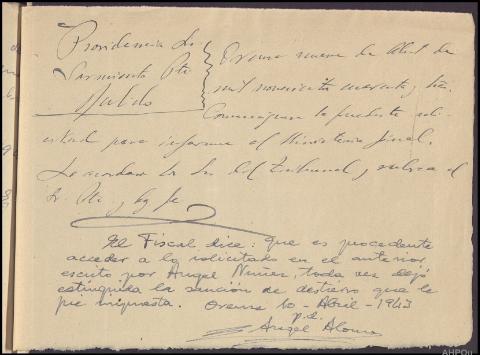 Providencia
Sarmiento Pte
Orense nueve de Abril de
mil novecientos cuarenta y tres.
la presente
para informe al Ministerio fiscal.
Lo acordaron los Sres. del Tribunal, rubrica el
Sr. Pte, doy fe
El Fiscal dice: que es procedente
acceder a lo solicitado en el anterior
escrito por Angel Nuñez, toda vez dejó
extinguida la sanción de destierro que le
fue impuesta. Orense 10 - Abril - 1943
p.d.
Angel Alonso
AHPOu